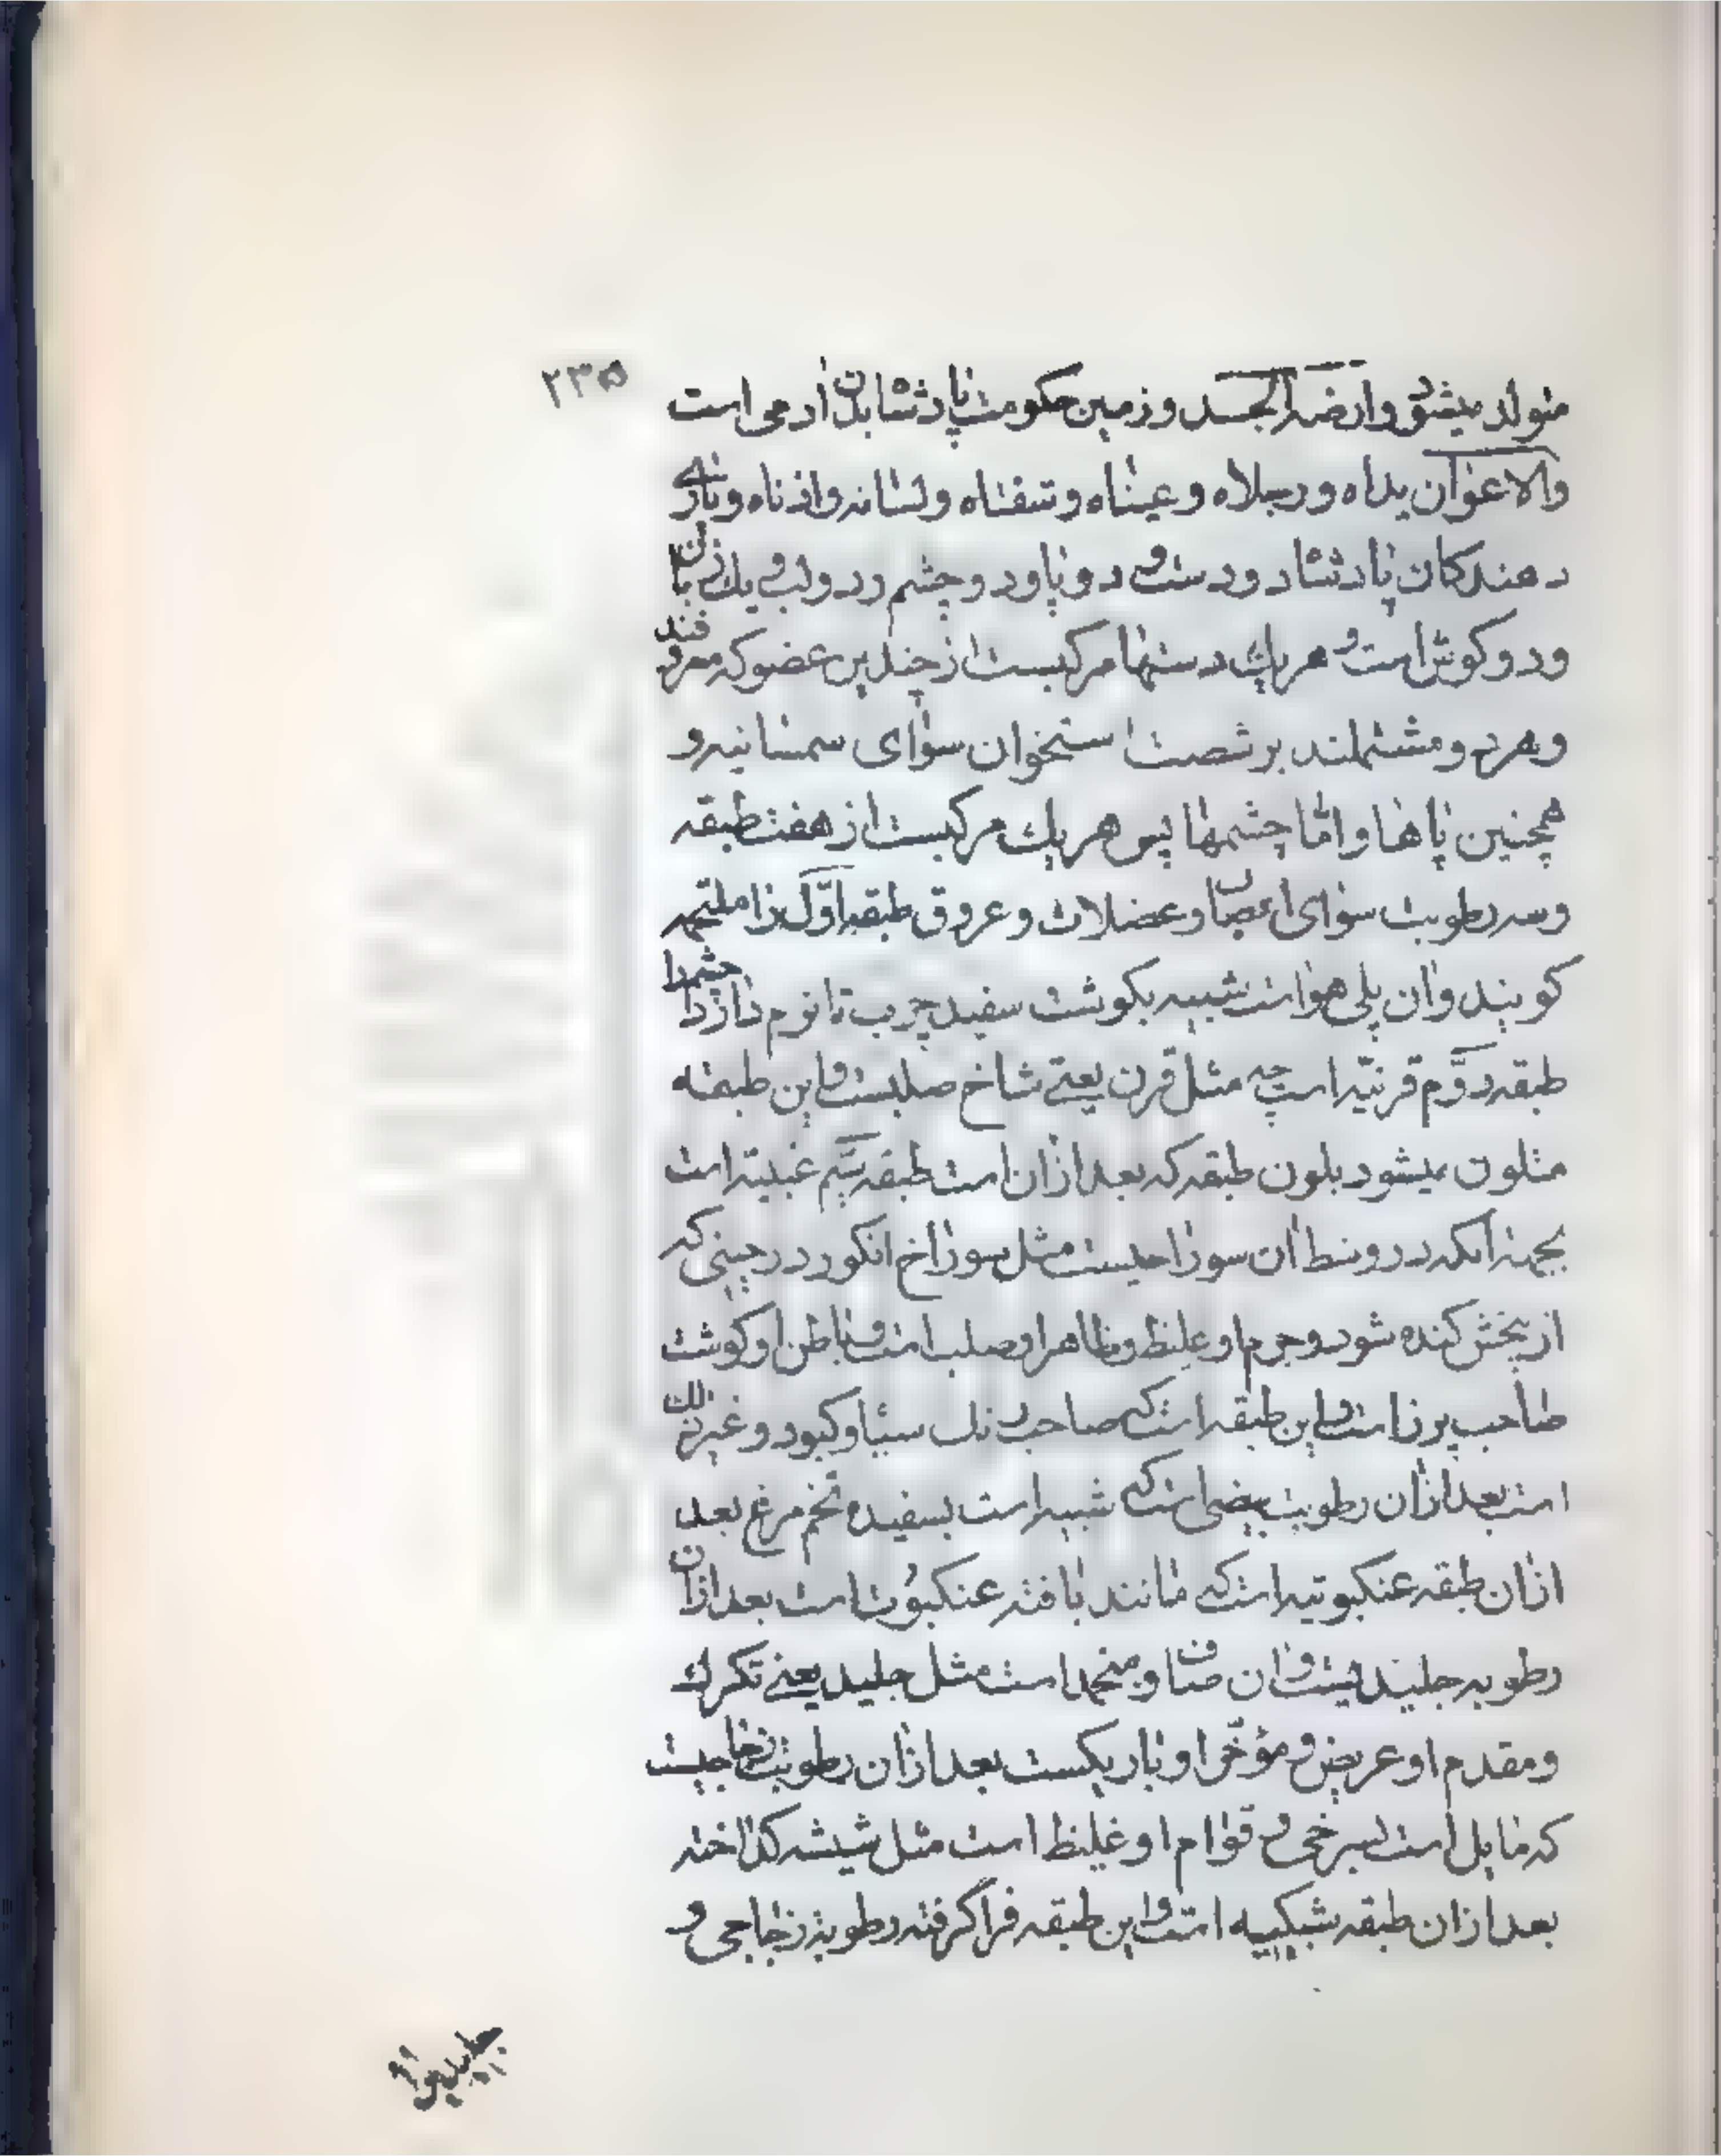 ۲۳۵
متولد میشود و ارضه الجسد و زمین حکومت پادشا بدن آدمی است
والاعوان یداه ورجلاه وعیناه وشفتاه ولسانه واذناه ویاری
دهندگان پادشا دو دست و دو پا و دو چشم و دو لب و یك زبان
و دو کوش است و هر یك دستها مرکبست از چندین عضو که معروفند
و هر دو مشتملند بر شصت استخوان سوای سمسانیه و
همچنین پاها و امّا چشمها پس هر یك مرکبست از هفت طبقه
و سه رطوبت سوای اعصاب و عضلات و عروق طبقه اوّل را ملتحمه
کویند و ان یلی هوا است شبیه بکوشت سفید چرب تا نرم دارد چشم را
طبقه دوّم قرنیّه است چه مثل قرن یعنی شاخ صلبست و این طبقه
متلون میشود بلون طبقه که بعد ازان است طبقه سیّم عنبیّه است
بجهة انکه در وسط ان سوراخیست مثل سوراخ انکور در حینی که
از بیخش کنده شود و جرم او غلیظ و ظاهر او صلب است و باطن او کوشت
صاحب پرز است و این طبقه است که صاحب رنك سیا و کبود و غیر ذلك
است بعد ازان رطوبت بیضی است که شبیه است بسفیده تخم مرغ بعد
ازان طبقه عنکبوتیه است که مانند بافته عنکبوت است بعد ازان
رطوبه جلیدیست و ان صاف و منجمد است مثل جلید یعنی تکرك
و مقدم او عریض و مؤخّر او باریکست بعد ازان رطوبت زجاجیست
که مایل است بسرخی و قوام او غلیظ است مثل شیشه کداخته
بعد ازان طبقه شبکییه است و این طبقه فرا کرفته رطوبة زجاجی و
جلیدی را